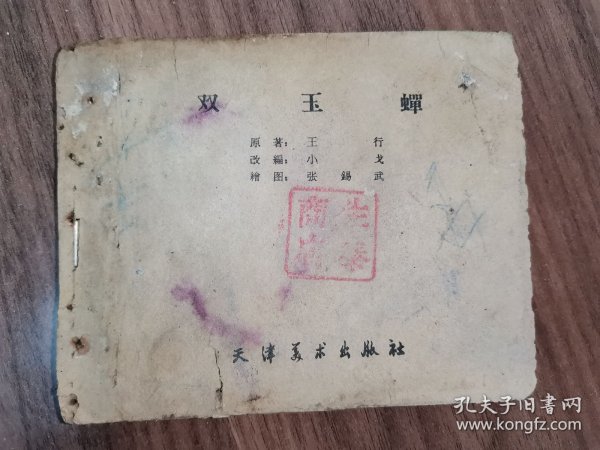 双 玉 蟬
原著：王 行
改編：小 戈
繪图：张錫武
天津美术出版社
孔夫子旧書网
www.kongfz.com